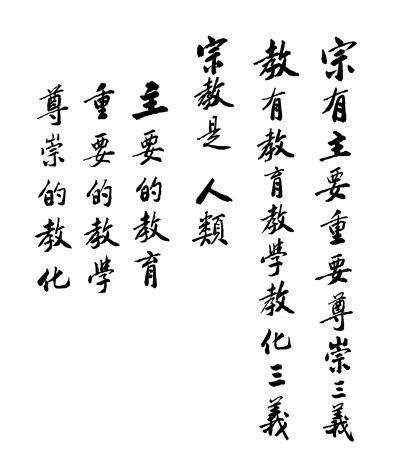 宗有主要重要尊崇三義
教有教育教學教化三義
宗教是 人類
主要的教育
重要的教學
尊崇的教化